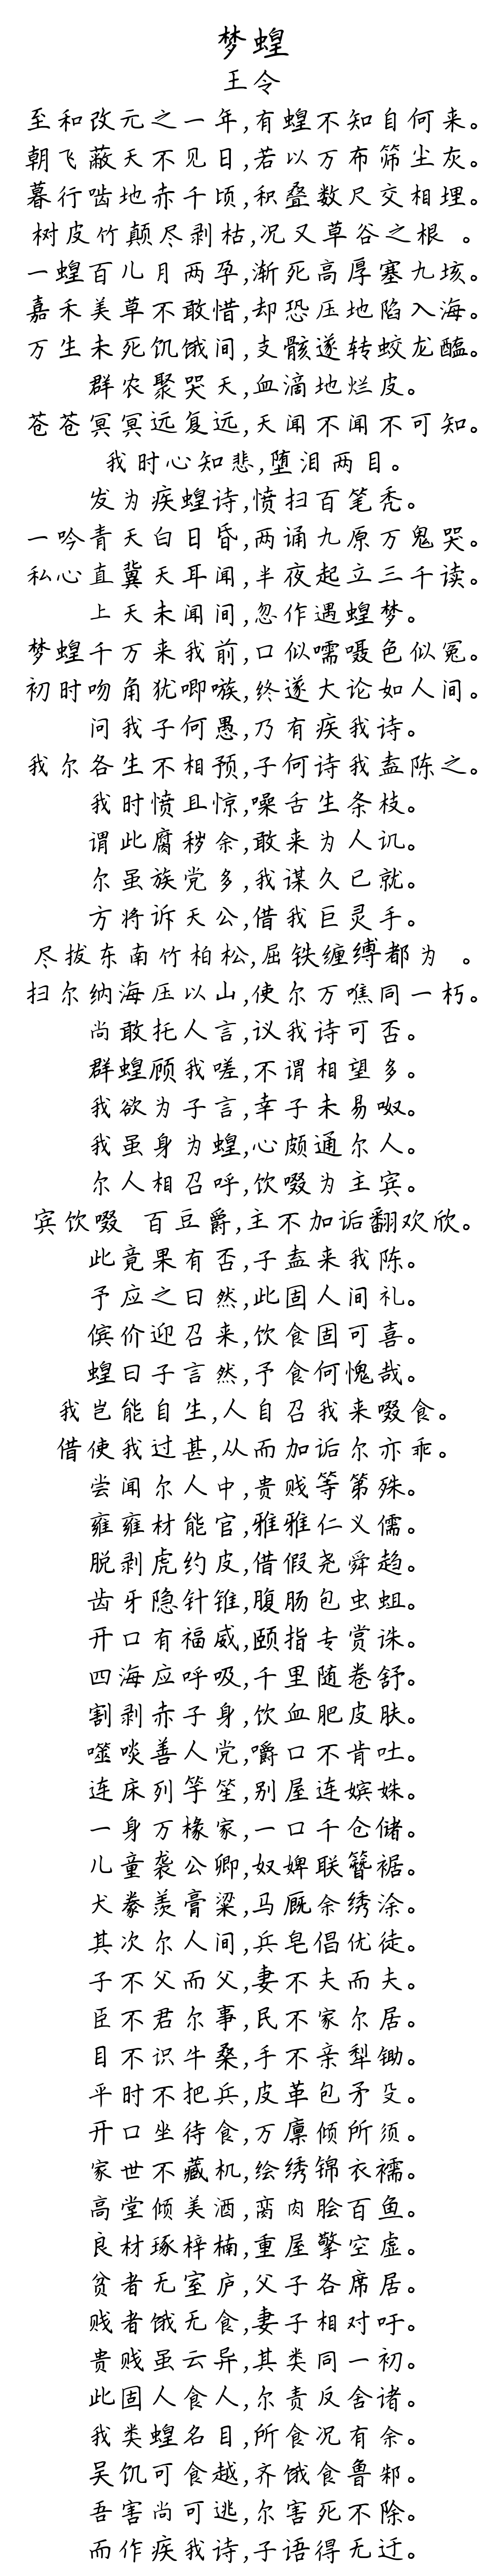 梦蝗
王令
至和改元之一年,有蝗不知自何来。
朝飞蔽天不见日,若以万布筛尘灰。
暮行啮地赤千顷,积叠数尺交相埋。
树皮竹颠尽剥枯,况又草谷之根 。
一蝗百儿月两孕,渐死高厚塞九垓。
嘉禾美草不敢惜,却恐压地陷入海。
万生未死饥饿间,支骸遂转蛟龙醢。
群农聚哭天,血滴地烂皮。
苍苍冥冥远复远,天闻不闻不可知。
我时心知悲,堕泪两目。
发为疾蝗诗,愤扫百笔秃。
一吟青天白日昏,两诵九原万鬼哭。
私心直冀天耳闻,半夜起立三千读。
上天未闻间,忽作遇蝗梦。
梦蝗千万来我前,口似嚅嗫色似冤。
初时吻角犹唧嗾,终遂大论如人间。
问我子何愚,乃有疾我诗。
我尔各生不相预,子何诗我盍陈之。
我时愤且惊,噪舌生条枝。
谓此腐秽余,敢来为人讥。
尔虽族党多,我谋久已就。
方将诉天公,借我巨灵手。
尽拔东南竹柏松,屈铁缠缚都为 。
扫尔纳海压以山,使尔万噍同一朽。
尚敢托人言,议我诗可否。
群蝗顾我嗟,不谓相望多。
我欲为子言,幸子未易呶。
我虽身为蝗,心颇通尔人。
尔人相召呼,饮啜为主宾。
宾饮啜 百豆爵,主不加诟翻欢欣。
此竟果有否,子盍来我陈。
予应之曰然,此固人间礼。
傧价迎召来,饮食固可喜。
蝗曰子言然,予食何愧哉。
我岂能自生,人自召我来啜食。
借使我过甚,从而加诟尔亦乖。
尝闻尔人中,贵贱等第殊。
雍雍材能官,雅雅仁义儒。
脱剥虎约皮,借假尧舜趋。
齿牙隐针锥,腹肠包虫蛆。
开口有福威,颐指专赏诛。
四海应呼吸,千里随卷舒。
割剥赤子身,饮血肥皮肤。
噬啖善人党,嚼口不肯吐。
连床列竽笙,别屋连嫔姝。
一身万椽家,一口千仓储。
儿童袭公卿,奴婢联簪裾。
犬豢羡膏粱,马厩余绣涂。
其次尔人间,兵皂倡优徒。
子不父而父,妻不夫而夫。
臣不君尔事,民不家尔居。
目不识牛桑,手不亲犁锄。
平时不把兵,皮革包矛殳。
开口坐待食,万廪倾所须。
家世不藏机,绘绣锦衣襦。
高堂倾美酒,脔肉脍百鱼。
良材琢梓楠,重屋擎空虚。
贫者无室庐,父子各席居。
贱者饿无食,妻子相对吁。
贵贱虽云异,其类同一初。
此固人食人,尔责反舍诸。
我类蝗名目,所食况有余。
吴饥可食越,齐饿食鲁邾。
吾害尚可逃,尔害死不除。
而作疾我诗,子语得无迂。